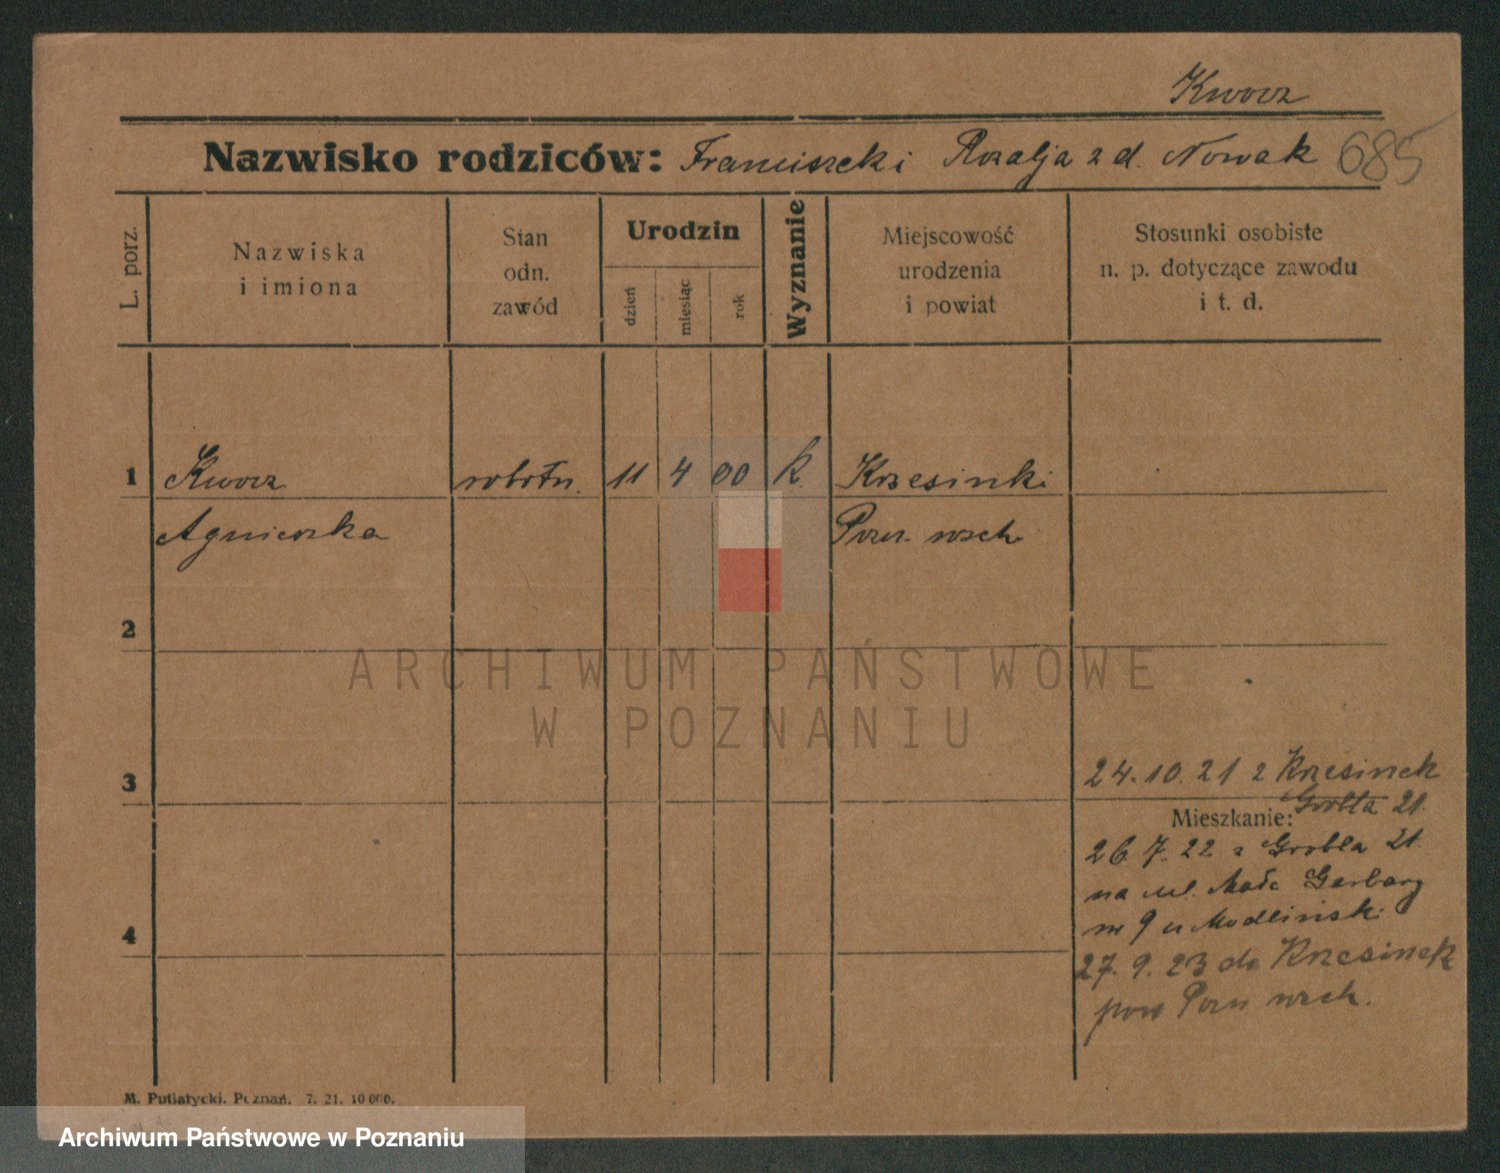 Kwocz
Nazwisko rodziców: Franciszek i Rozalja z d. Nowak 685
L. porz.
Nazwiska
i imiona
Stan
odn.
zawód
Urodzin
dzień
miesiąc
rok
Wyznanie
Miejscowość
urodzenia
i powiat
Stosunki osobiste
n. p. dotyczące zawodu
i t. d.
1 Kwocz robotn. 11 4 00 k. Krzesinki
Agnieszka Pozn. wsch.
2
ARCHIWUM PAŃSTWOWE
W POZNANIU
24.10.21 z Krzesinek
3
Grobla 21.
Mieszkanie:
26.7.22 z Grobla 21
na ul. Małe Garbary
nr 9 u Modlińsk.
4
27.9.23 do Krzesinek
pow Pozn wsch.
M. Putiatycki, Poznań. 7. 21. 10 000.
Archiwum Państwowe w Poznaniu